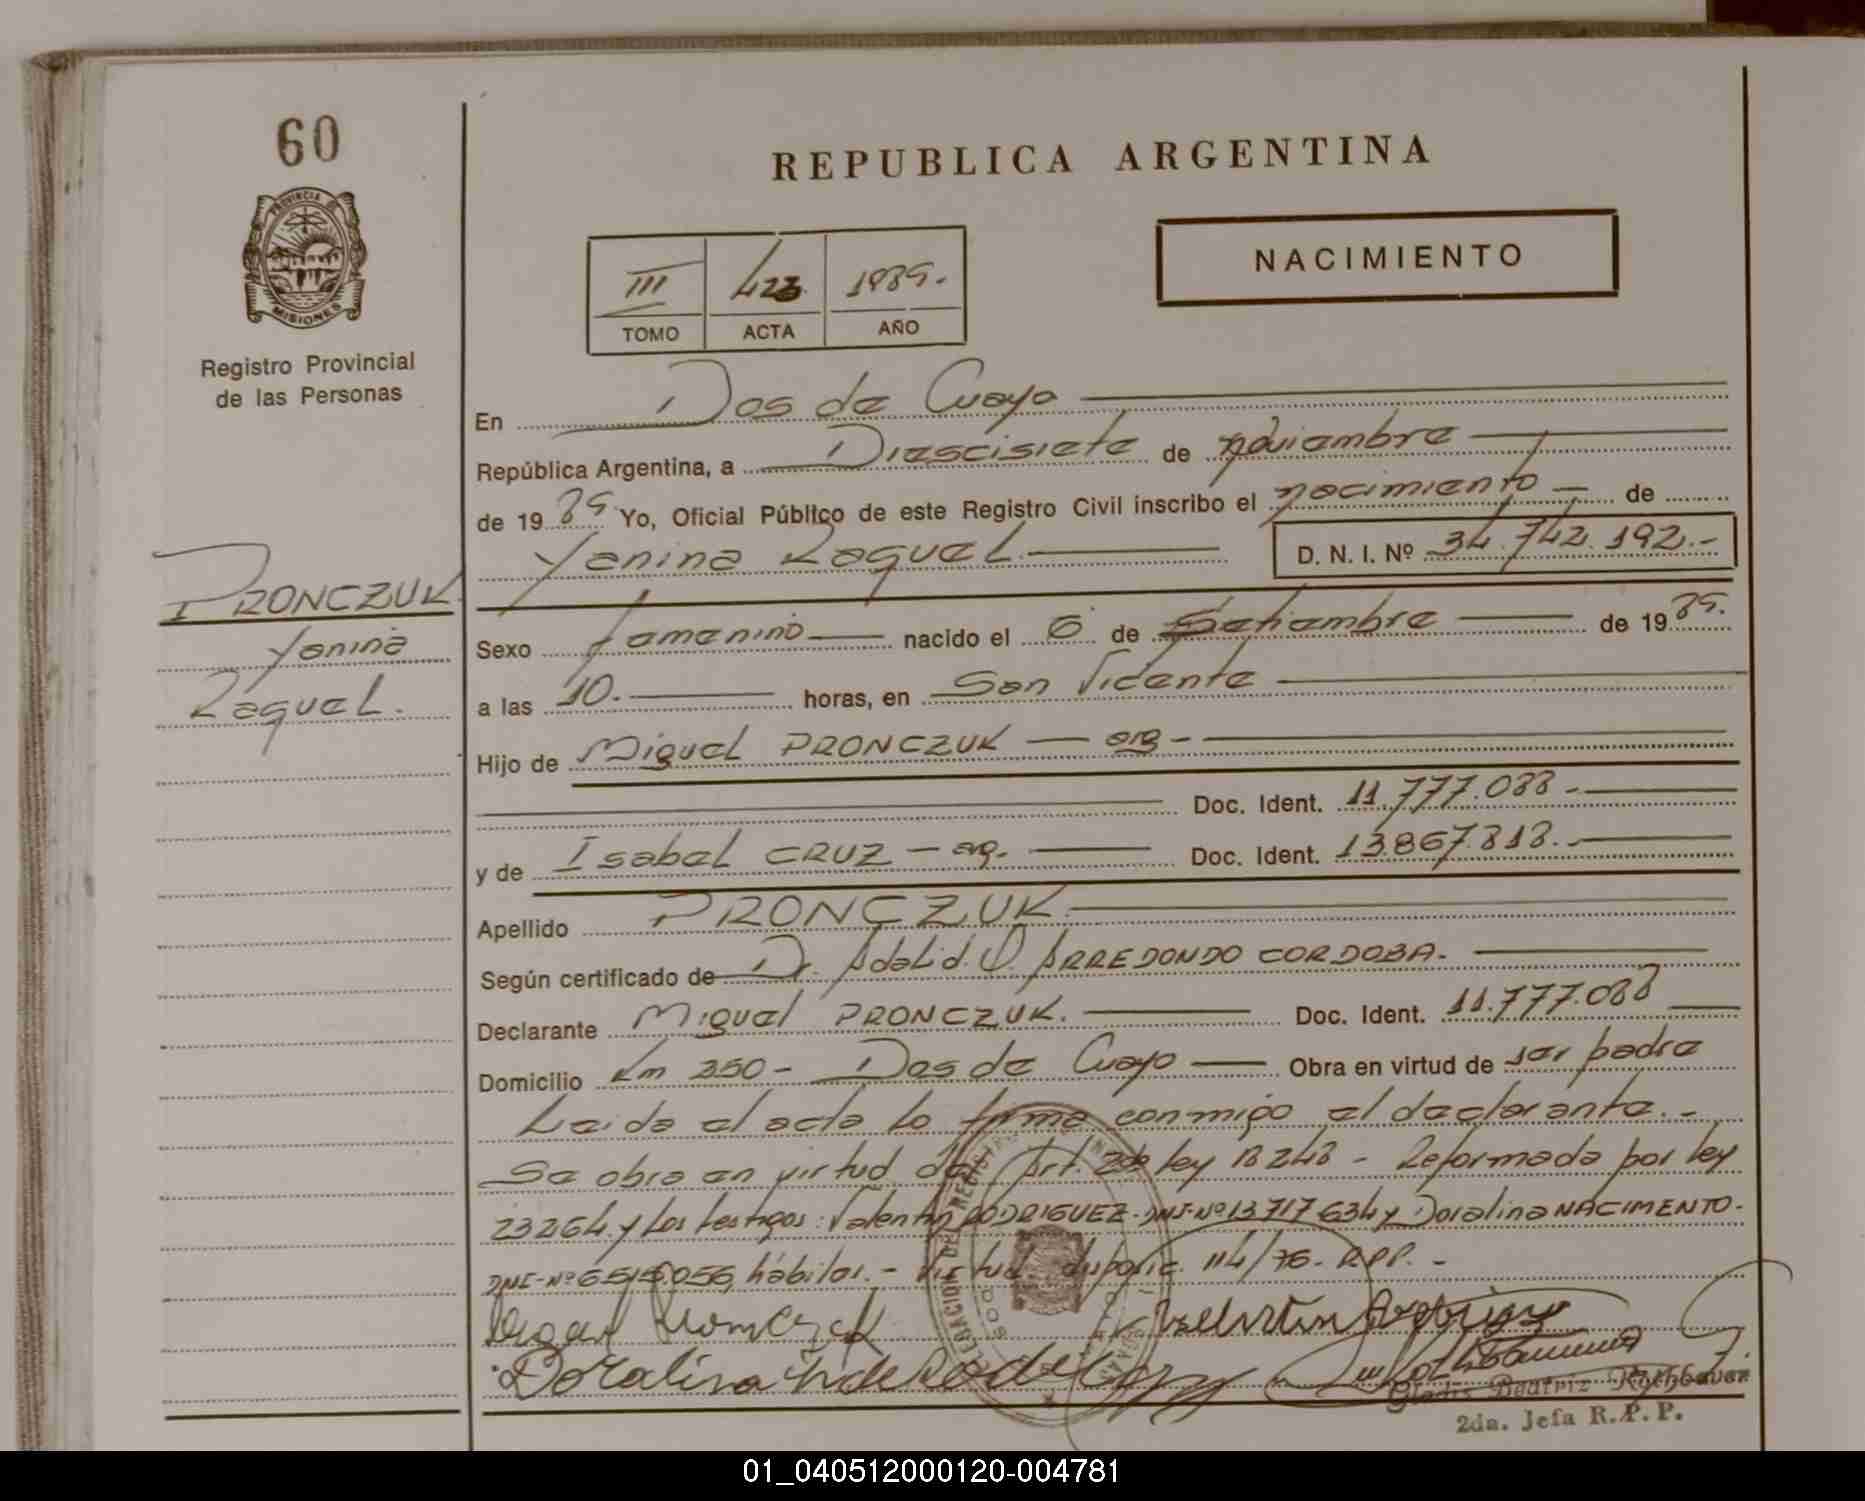 60
PROVINCIA DE
MISIONES
Registro Provincial
de las Personas
REPUBLICA ARGENTINA
NACIMIENTO
III 423 1989.
TOMO ACTA AÑO
En Dos de Mayo
República Argentina, a Diescisiete de noviembre
de 19 89 Yo, Oficial Público de este Registro Civil inscribo el nacimiento de
Yanina Raquel D. N. I. Nº 34.742.192.-
PRONCZUK
Yanina
Raquel.
Sexo femenino nacido el 6 de Setiembre de 19 89.
a las 10. horas, en San Vicente
Hijo de Miguel PRONCZUK - arg -
Doc. Ident. 11.777.088.-
y de Isabel CRUZ - arg. - Doc. Ident. 13.867.818.-
Apellido PRONCZUK.
Según certificado de Dr. Adalid. O. ARREDONDO CORDOBA.
Declarante Miguel PRONCZUK. Doc. Ident. 11.777.088
Domicilio Km 250 - Dos de Mayo Obra en virtud de ser padre
Leida el acta lo firma conmigo el declarante. -
Se obra en virtud del Art. 2 de ley 18248 - Reformada por ley
23264. y los testigos: Valentin RODRIGUEZ. DNI-Nº 13717634 y Doralina NACIMENTO.
DNI-Nº 6.515.056, hábiles. - Virtud disposic. 114/76. RPP. -
Valentin Rodriguez
Doralina
Gladis Beatriz Rothbauer
2da. Jefa R.P.P.
01_040512000120-004781